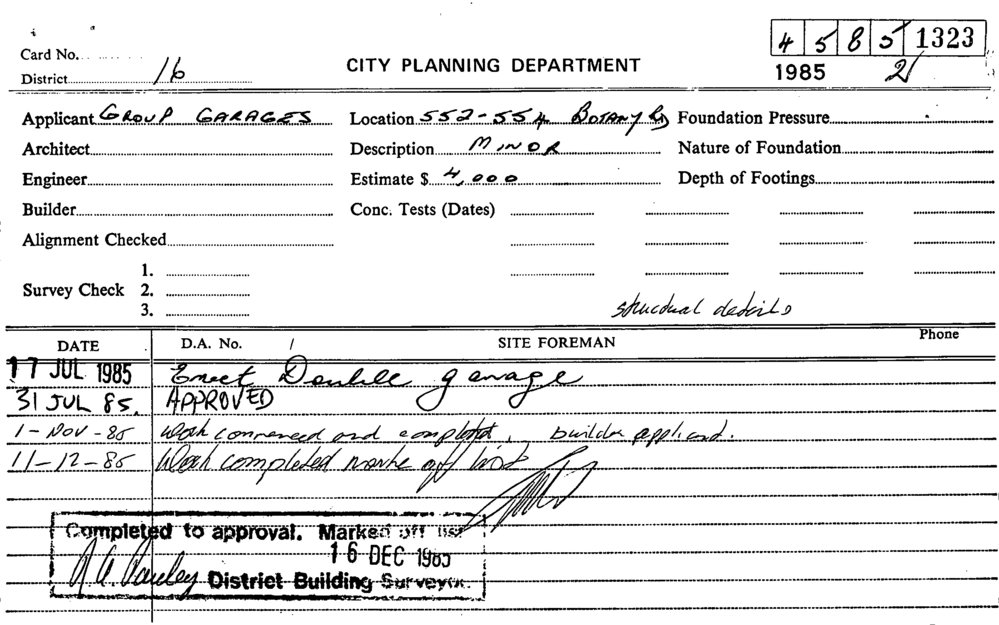 4 5 8 5 1323
Card No.
District 16
CITY PLANNING DEPARTMENT
1985 2
Applicant GROUP GARAGES Location 552-554 BOTANY RD Foundation Pressure
Architect Description MINOR Nature of Foundation
Engineer Estimate $ 4,000 Depth of Footings
Builder Conc. Tests (Dates)
Alignment Checked
1.
Survey Check 2.
3.
structural details
DATE D.A. No. / SITE FOREMAN Phone
17 JUL 1985 Erect Double garage
31 JUL 85. APPROVED
1-NOV-85 Work commenced and completed, builder applicant.
11-12-85 Work completed marke off list
Completed to approval. Marked off list
16 DEC 1985
District Building Surveyor.